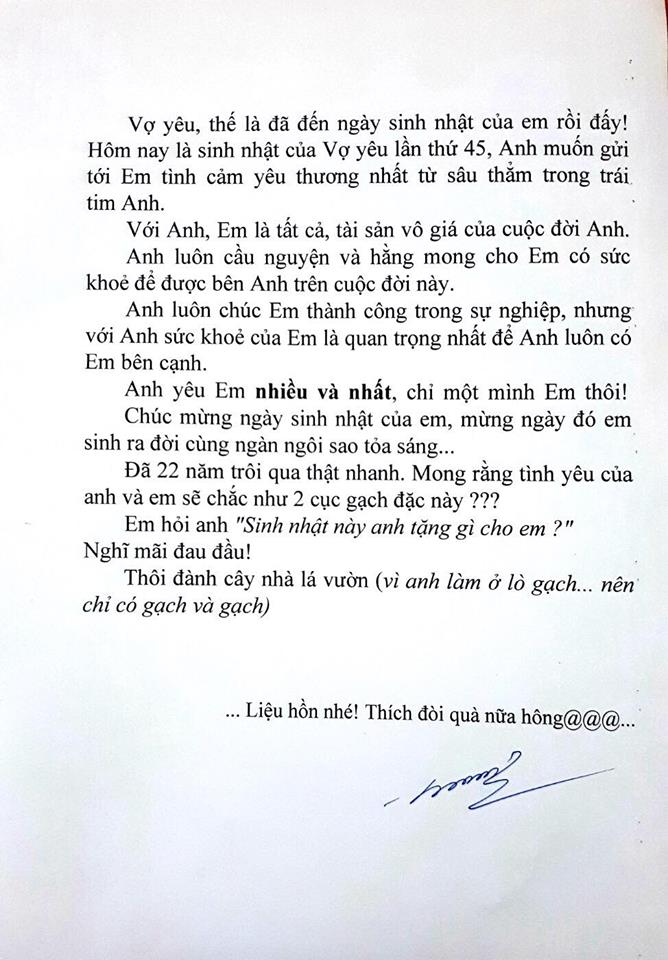 Vợ yêu, thế là đã đến ngày sinh nhật của em rồi đấy!
Hôm nay là sinh nhật của Vợ yêu lần thứ 45, Anh muốn gửi
tới Em tình cảm yêu thương nhất từ sâu thẳm trong trái
tim Anh.
Với Anh, Em là tất cả, tài sản vô giá của cuộc đời Anh.
Anh luôn cầu nguyện và hằng mong cho Em có sức
khoẻ để được bên Anh trên cuộc đời này.
Anh luôn chúc Em thành công trong sự nghiệp, nhưng
với Anh sức khoẻ của Em là quan trọng nhất để Anh luôn có
Em bên cạnh.
Anh yêu Em nhiều và nhất, chỉ một mình Em thôi!
Chúc mừng ngày sinh nhật của em, mừng ngày đó em
sinh ra đời cùng ngàn ngôi sao tỏa sáng...
Đã 22 năm trôi qua thật nhanh. Mong rằng tình yêu của
anh và em sẽ chắc như 2 cục gạch đặc này ???
Em hỏi anh "Sinh nhật này anh tặng gì cho em ?"
Nghĩ mãi đau đầu!
Thôi đành cây nhà lá vườn (vì anh làm ở lò gạch... nên
chỉ có gạch và gạch)
... Liệu hồn nhé! Thích đòi quà nữa hông@@@...